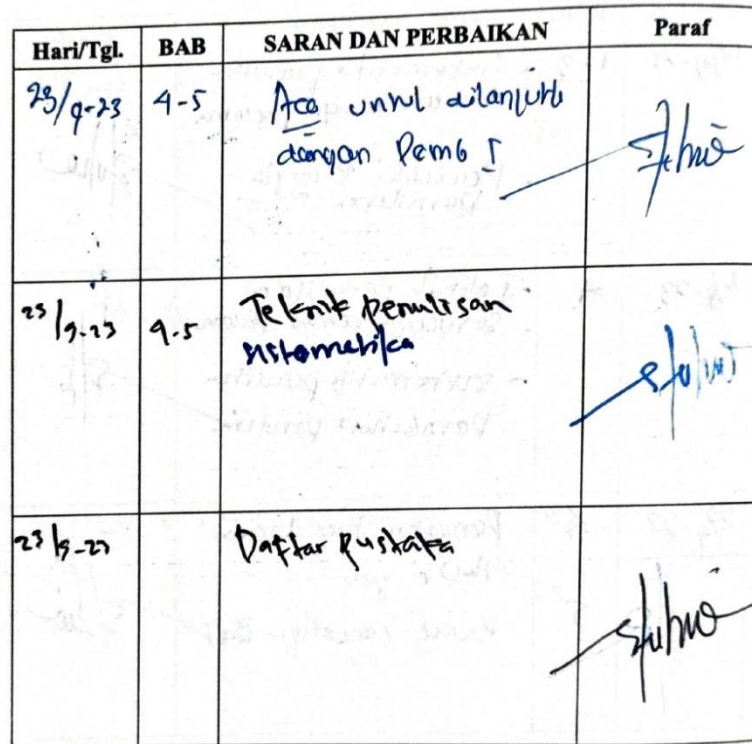 Hari/Tgl. BAB SARAN DAN PERBAIKAN Paraf
23/9-23 4-5 Acc untuk dilanjutk
dengan Pemb I
23/9-23 4-5 Teknik penulisan
sistematika
23/9-23 Daftar pustaka